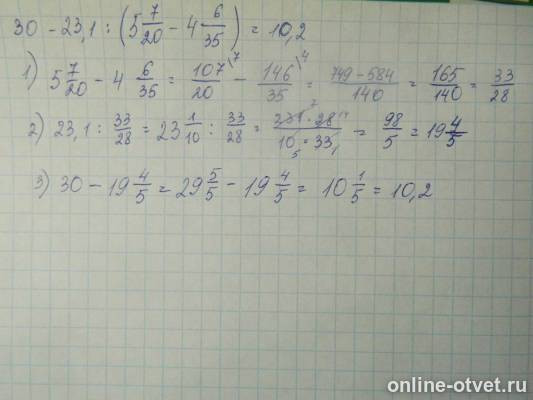 30 - 23,1 : (5 7/20 - 4 6/35) = 10,2
1) 5 7/20 - 4 6/35 = 107/20 \7 - 146/35 \4 = 749-584/140 = 165/140 = 33/28
2) 23,1 : 33/28 = 23 1/10 : 33/28 = 231 · 28 14/10 5 · 33 1 = 98/5 = 19 4/5
3) 30 - 19 4/5 = 29 5/5 - 19 4/5 = 10 1/5 = 10,2
online-otvet.ru